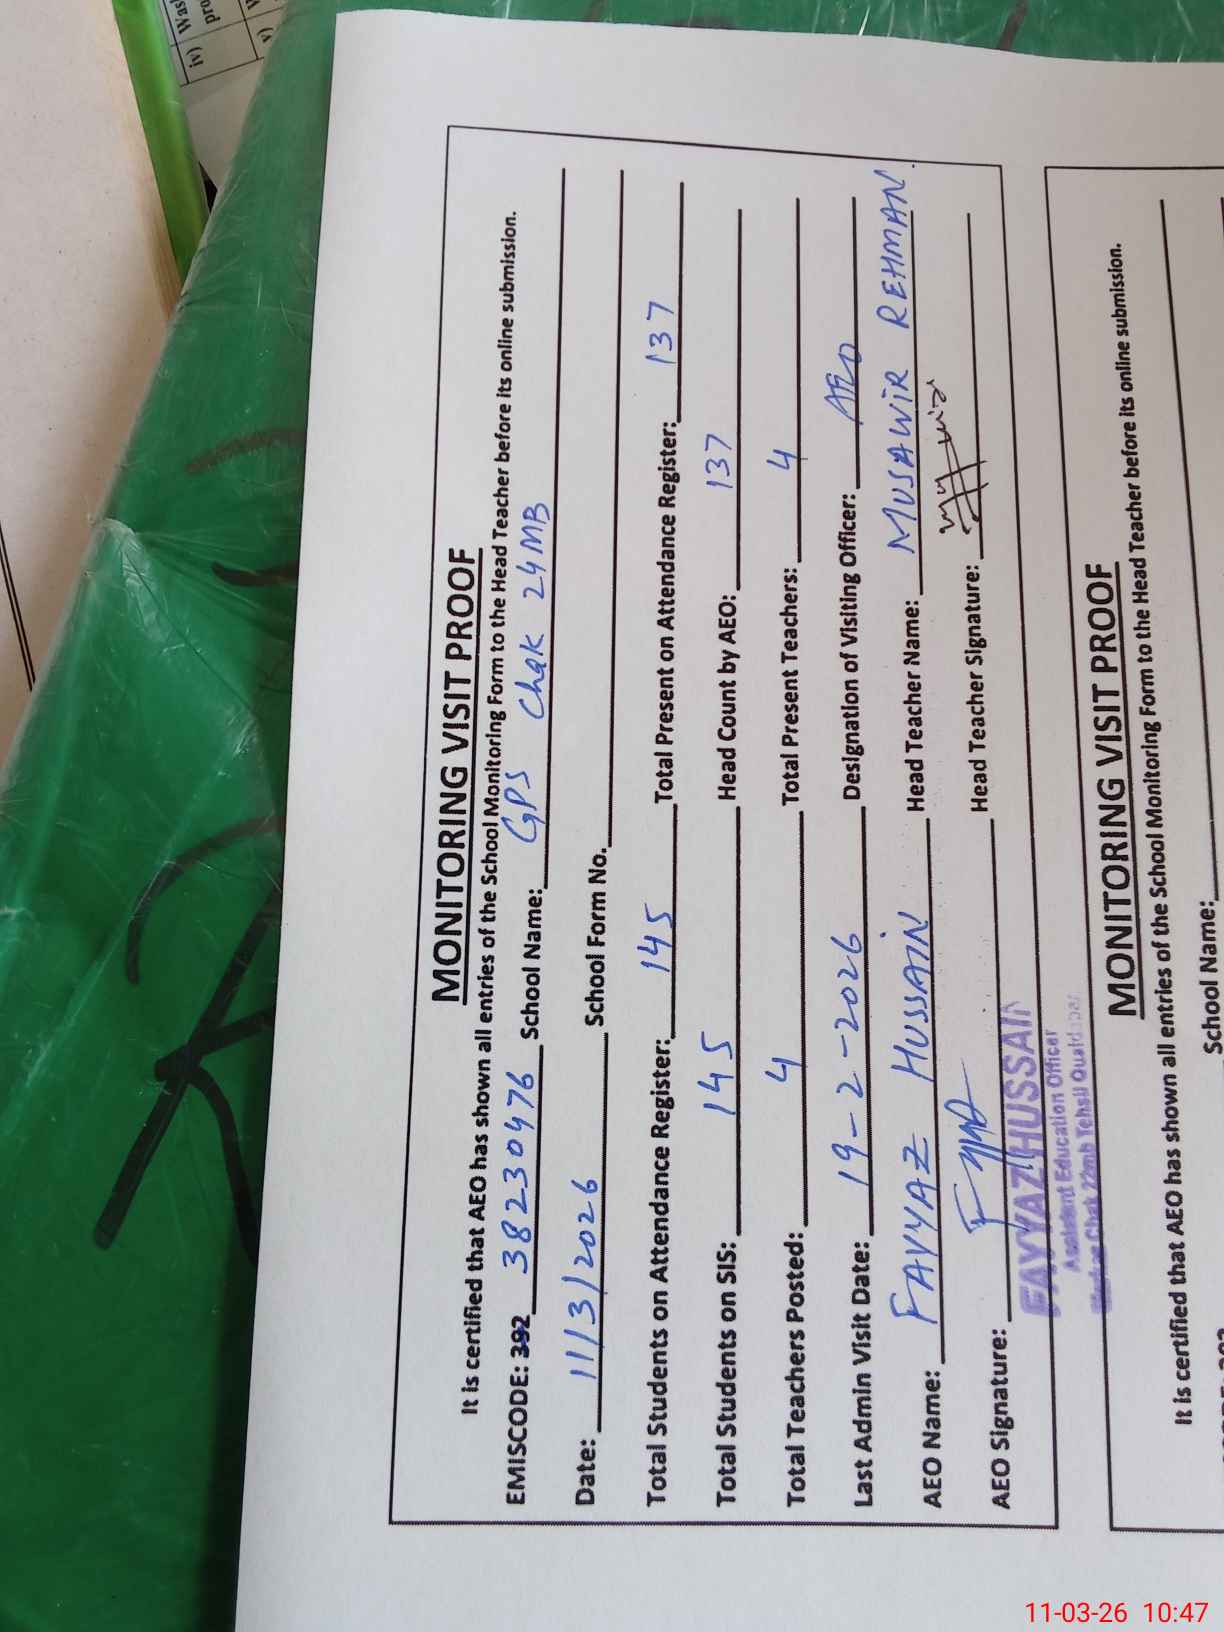 MONITORING VISIT PROOF
It is certified that AEO has shown all entries of the School Monitoring Form to the Head Teacher before its online submission.
EMISCODE: 392 38230476 School Name: GPS Chak 24 MB
Date: 11/3/2026 School Form No.
Total Students on Attendance Register: 145 Total Present on Attendance Register: 137
Total Students on SIS: 145 Head Count by AEO: 137
Total Teachers Posted: 4 Total Present Teachers: 4
Last Admin Visit Date: 19-2-2026 Designation of Visiting Officer: AEO
AEO Name: FAYYAZ HUSSAIN Head Teacher Name: MUSAWIR REHMAN.
AEO Signature: Head Teacher Signature:
FAYYAZ HUSSAIN
Assistant Education Officer
Markaz Chak 22mb Tehsil Quaidabad
MONITORING VISIT PROOF
It is certified that AEO has shown all entries of the School Monitoring Form to the Head Teacher before its online submission.
School Name:
iv) Was
pro
v)
11-03-26 10:47